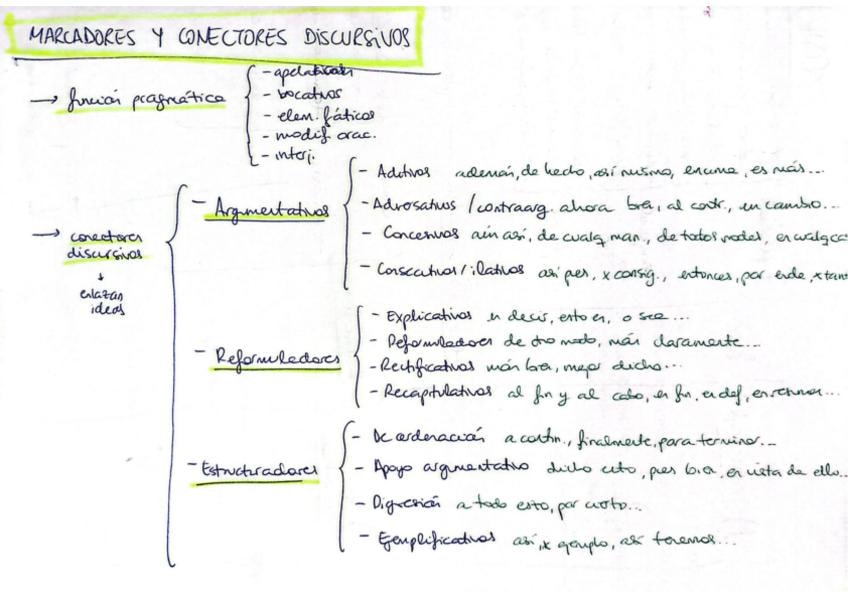 MARCADORES Y CONECTORES DISCURSIVOS
→ función pragmática
- apelativos
- vocativos
- elem. fáticos
- modif. orac.
- interj.
→ conectores discursivos
↓
enlazan ideas
- Argumentativos
- Aditivos además, de hecho, así mismo, encima, es más...
- Adversativos / contraarg. ahora bien, al contr., en cambio...
- Concesivos aún así, de cualq man., de todos modos,
- Consecutivos / ilativos así pues, x consig., entonces, por ende, x tan
- Reformuladores
- Explicativos es decir, esto es, o sea...
- Reformuladores de otro modo, más claramente...
- Rectificativos más bien, mejor dicho...
- Recapitulativos al fin y al cabo, en fin, en def, en resumen...
- Estructuradores
- De ordenación a contin., finalmente, para terminar...
- Apoyo argumentativo dicho esto, pues bien, en vista de ello...
- Digresión a todo esto, por cierto...
- Ejemplificativos así, x ejemplo, así tenemos...